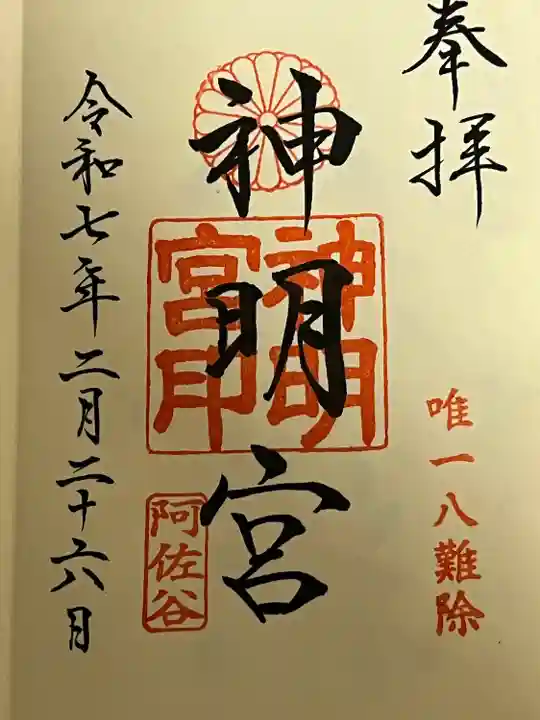 奉拝
唯一八難除
神明宮
神明
宮印
阿佐谷
令和七年二月二十六日